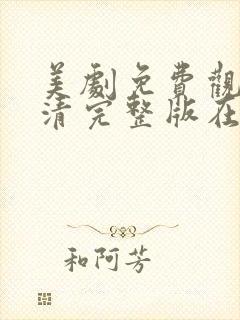 美劇免費觀
清完整版在
和阿芳